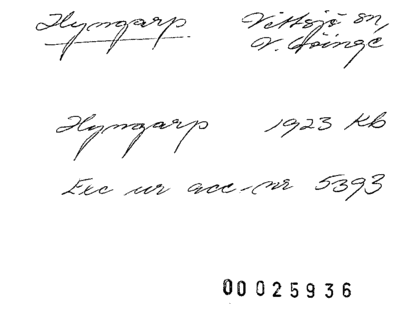 Hyngarp
Vittsjö sn,
V. Göinge
Hyngarp 1923 Kb
Exc ur acc-nr 5393
00025936